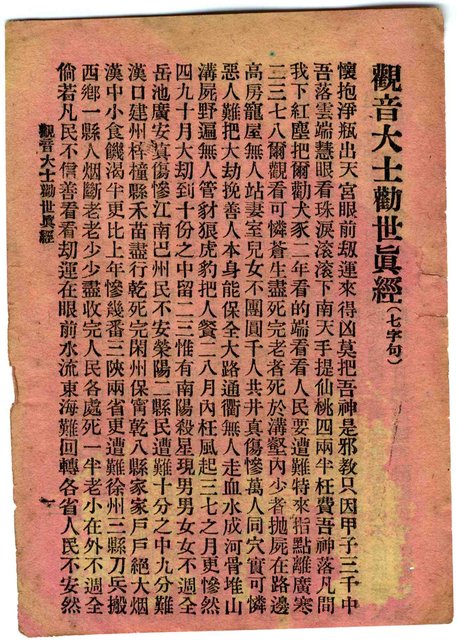 觀音大士勸世眞經（七字句）
懷抱淨瓶出天宮眼前刼運來得凶莫把吾神是邪教只因甲子三千中
吾落雲端慧眼看珠淚滾滾下南天手提仙桃四兩半枉費吾神落凡問
我下紅塵把爾勸犬豕二年看的端看看人民要遭難特來指點離廣寒
二三七八爾觀看可憐蒼生盡死完老者死於溝壑內少者拋屍在路邊
高房寵屋無人站妻室兒女不團圓千人共井真傷慘萬人同穴實可憐
惡人難把大劫挽善人本身能保全大路通衢無人走血水成河骨堆山
溝屍野遍無人管豺狼虎豹把人餐二八月內枉風起三七之月更慘然
四九十月大劫到十份之中留二三惟有南陽殺星現男男女女不週全
岳池廣安真傷慘江南巴州民不安榮陽二縣民遭難十分之中九分難
漢口建州梓橦縣禾苗盡行乾死完閬州保甯乾八縣家家戶戶絕大烟
漢中小食饑渴牛更比上年慘幾番三陝兩省更遭難徐州三縣刀兵搬
西鄉一縣人烟斷老老少少盡收完人民各處死一半老小在外不週全
倘若凡民不信善看看劫運在眼前水流東海難回轉各省人民不安然
觀音大士勸世眞經